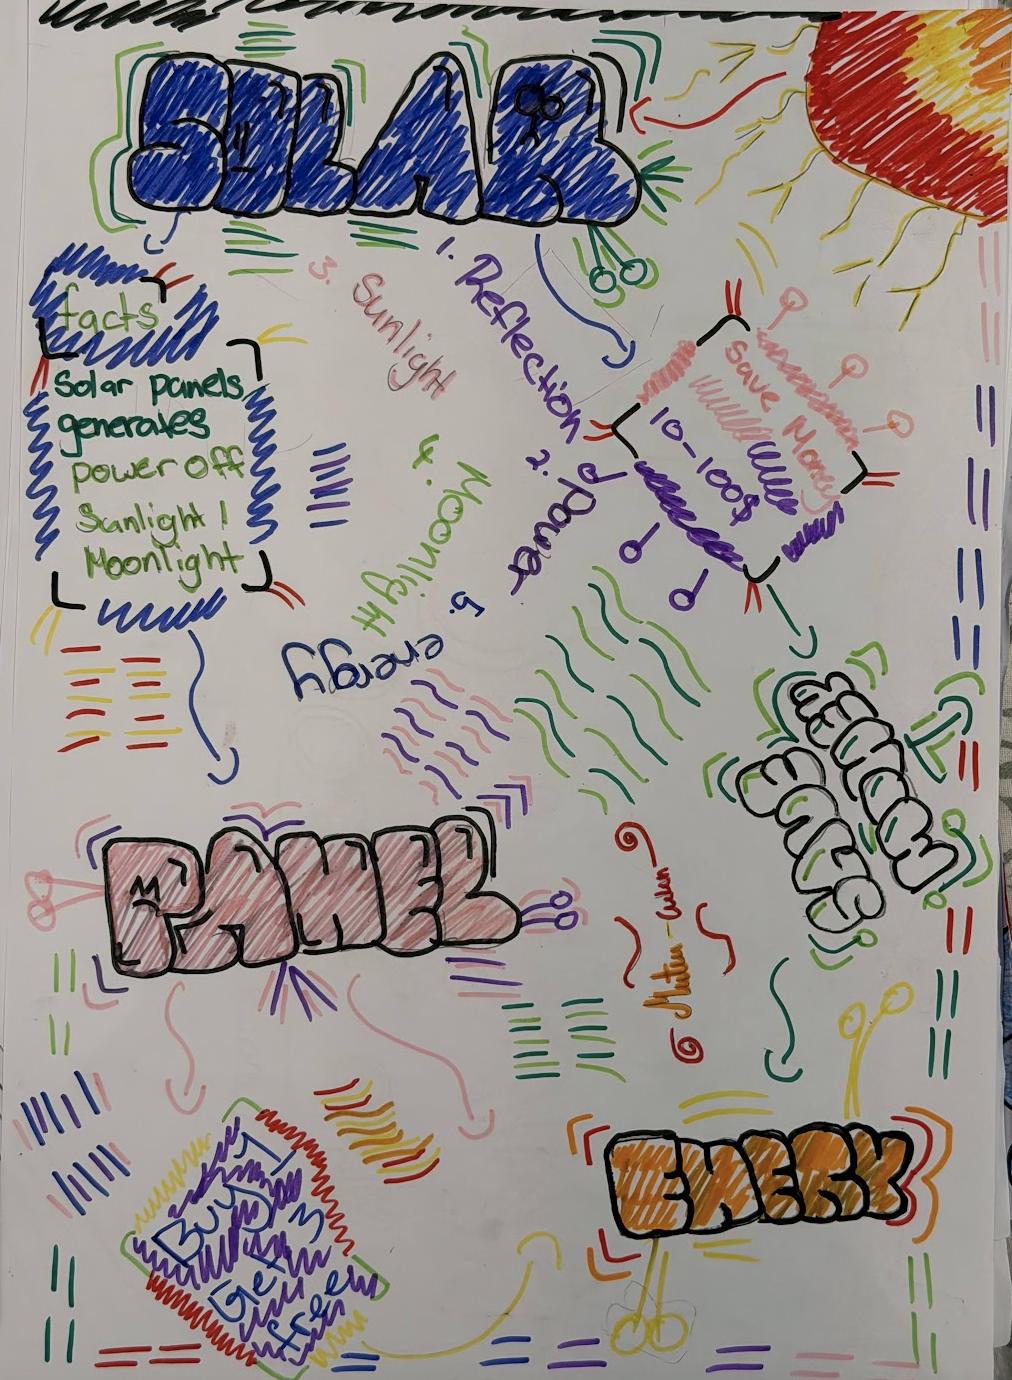 SOLAR
facts
Solar panels
generates
power off
Sunlight /
Moonlight
1. Reflection
2. Power
3. Sunlight
4. Moonlight
5. energy
Save Money
10-100$
POWER
PANEL
Buy 1
Get 3
free
ENERY